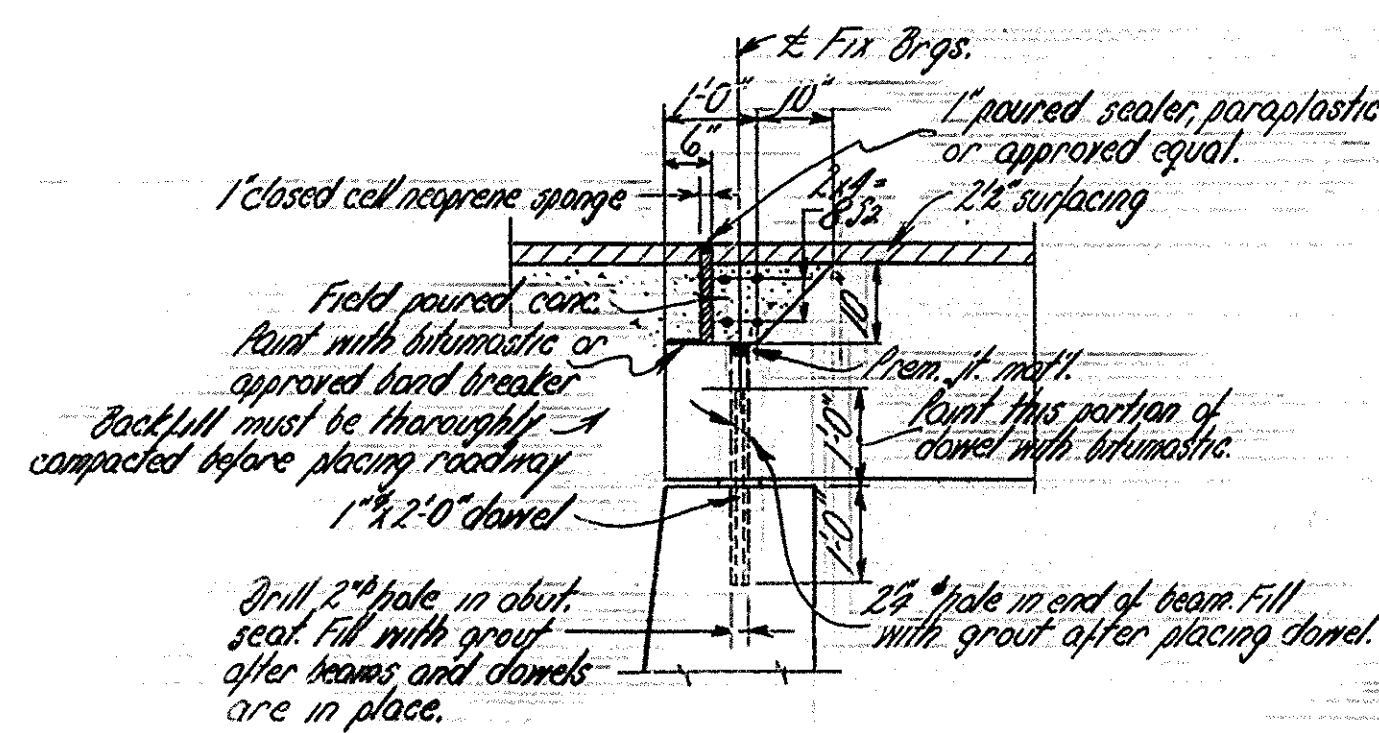 ℄ Fix Brgs.
1'-0"
10"
6"
1" poured sealer, paraplastic
or approved equal.
1" closed cell neoprene sponge
2x4=
8 S2
2½" surfacing
Field poured conc.
10"
Paint with bitumastic or
approved bond breaker
Prem. jt. mat'l.
Backfill must be thoroughly
compacted before placing roadway
1'-0"
Paint this portion of
dowel with bitumastic.
1"ϕ x 2'-0" dowel
1'-0"
Drill 2"ϕ hole in abut.
seat. Fill with grout
after beams and dowels
are in place.
2¼"ϕ hole in end of beam. Fill
with grout after placing dowel.